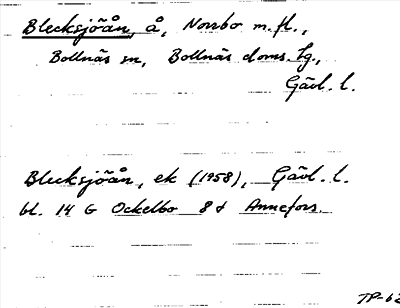 Blecksjöån, å, Norrbo m.fl.,
Bollnäs sn, Bollnäs doms. lg.,
Gävl. l.
Blecksjöån, ek (1958), Gävl. l.
bl. 14 G Ockelbo 8 d Annefors.
TP-62